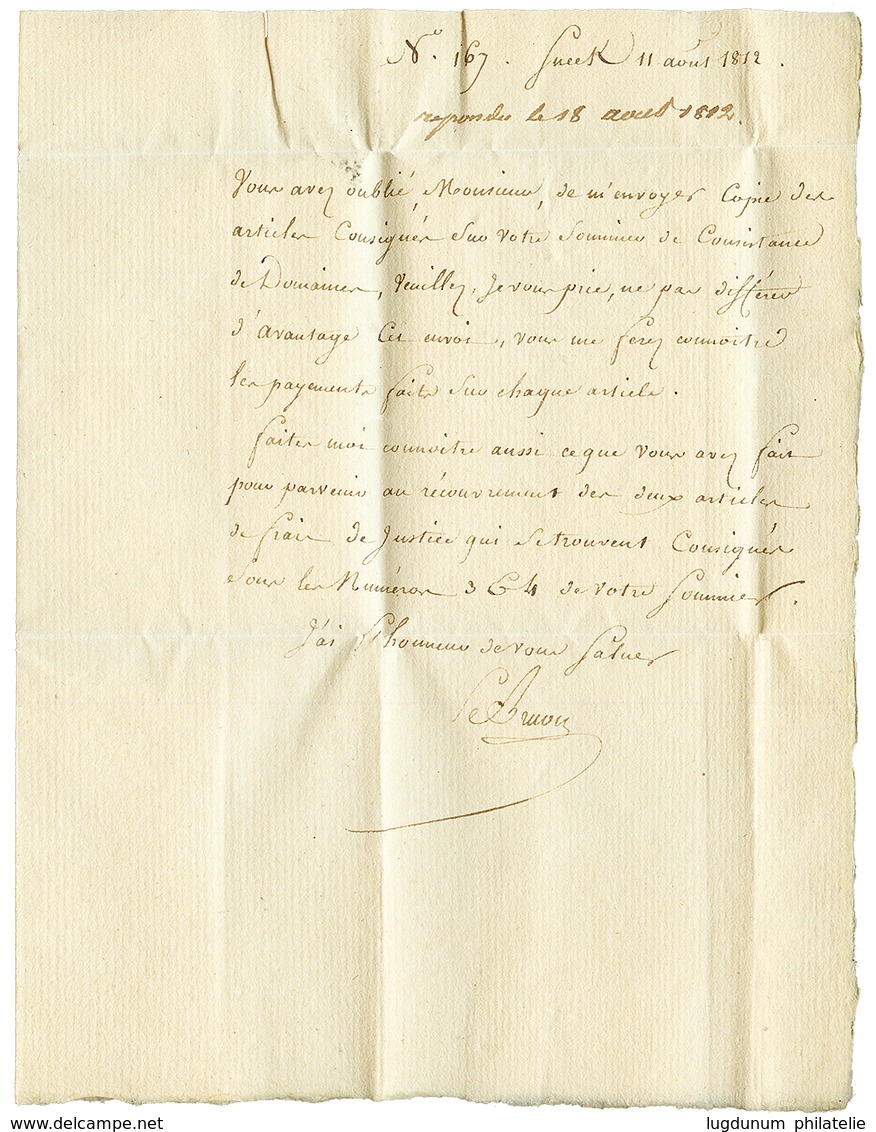 N.o 167. Sneek 11 août 1812.
repondu le 18 aout 1812.
Vous avez oublié, Monsieur, de m'envoyer Copie des
articles Consignés Sur Votre Sommier de Consistance
de Domaines, Veuillez, Je vous prie, ne pas différer
d'avantage Cet envoi, vous me ferez connoitre
les payements faits Sur chaque article.
faites moi connoitre aussi ce que vous avez fait
pour parvenir au récouvrement des deux articles
de frais de Justice qui se trouvent Consignés
Sous les Numéros 3 & 4 de votre Sommier.
J'ai l'honneur de vous Saluer
lugdunum philatelie